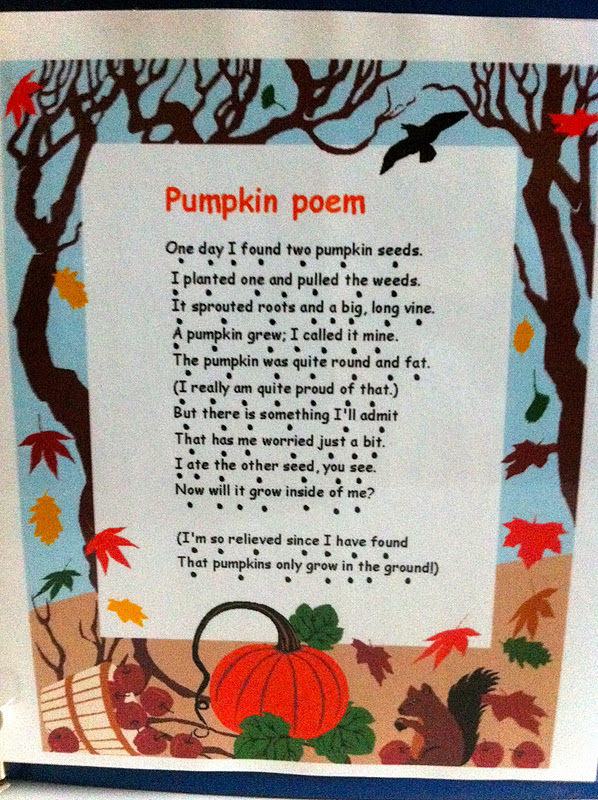 Pumpkin poem
One day I found two pumpkin seeds.
I planted one and pulled the weeds.
It sprouted roots and a big, long vine.
A pumpkin grew; I called it mine.
The pumpkin was quite round and fat.
(I really am quite proud of that.)
But there is something I'll admit
That has me worried just a bit.
I ate the other seed, you see.
Now will it grow inside of me?
(I'm so relieved since I have found
That pumpkins only grow in the ground!)